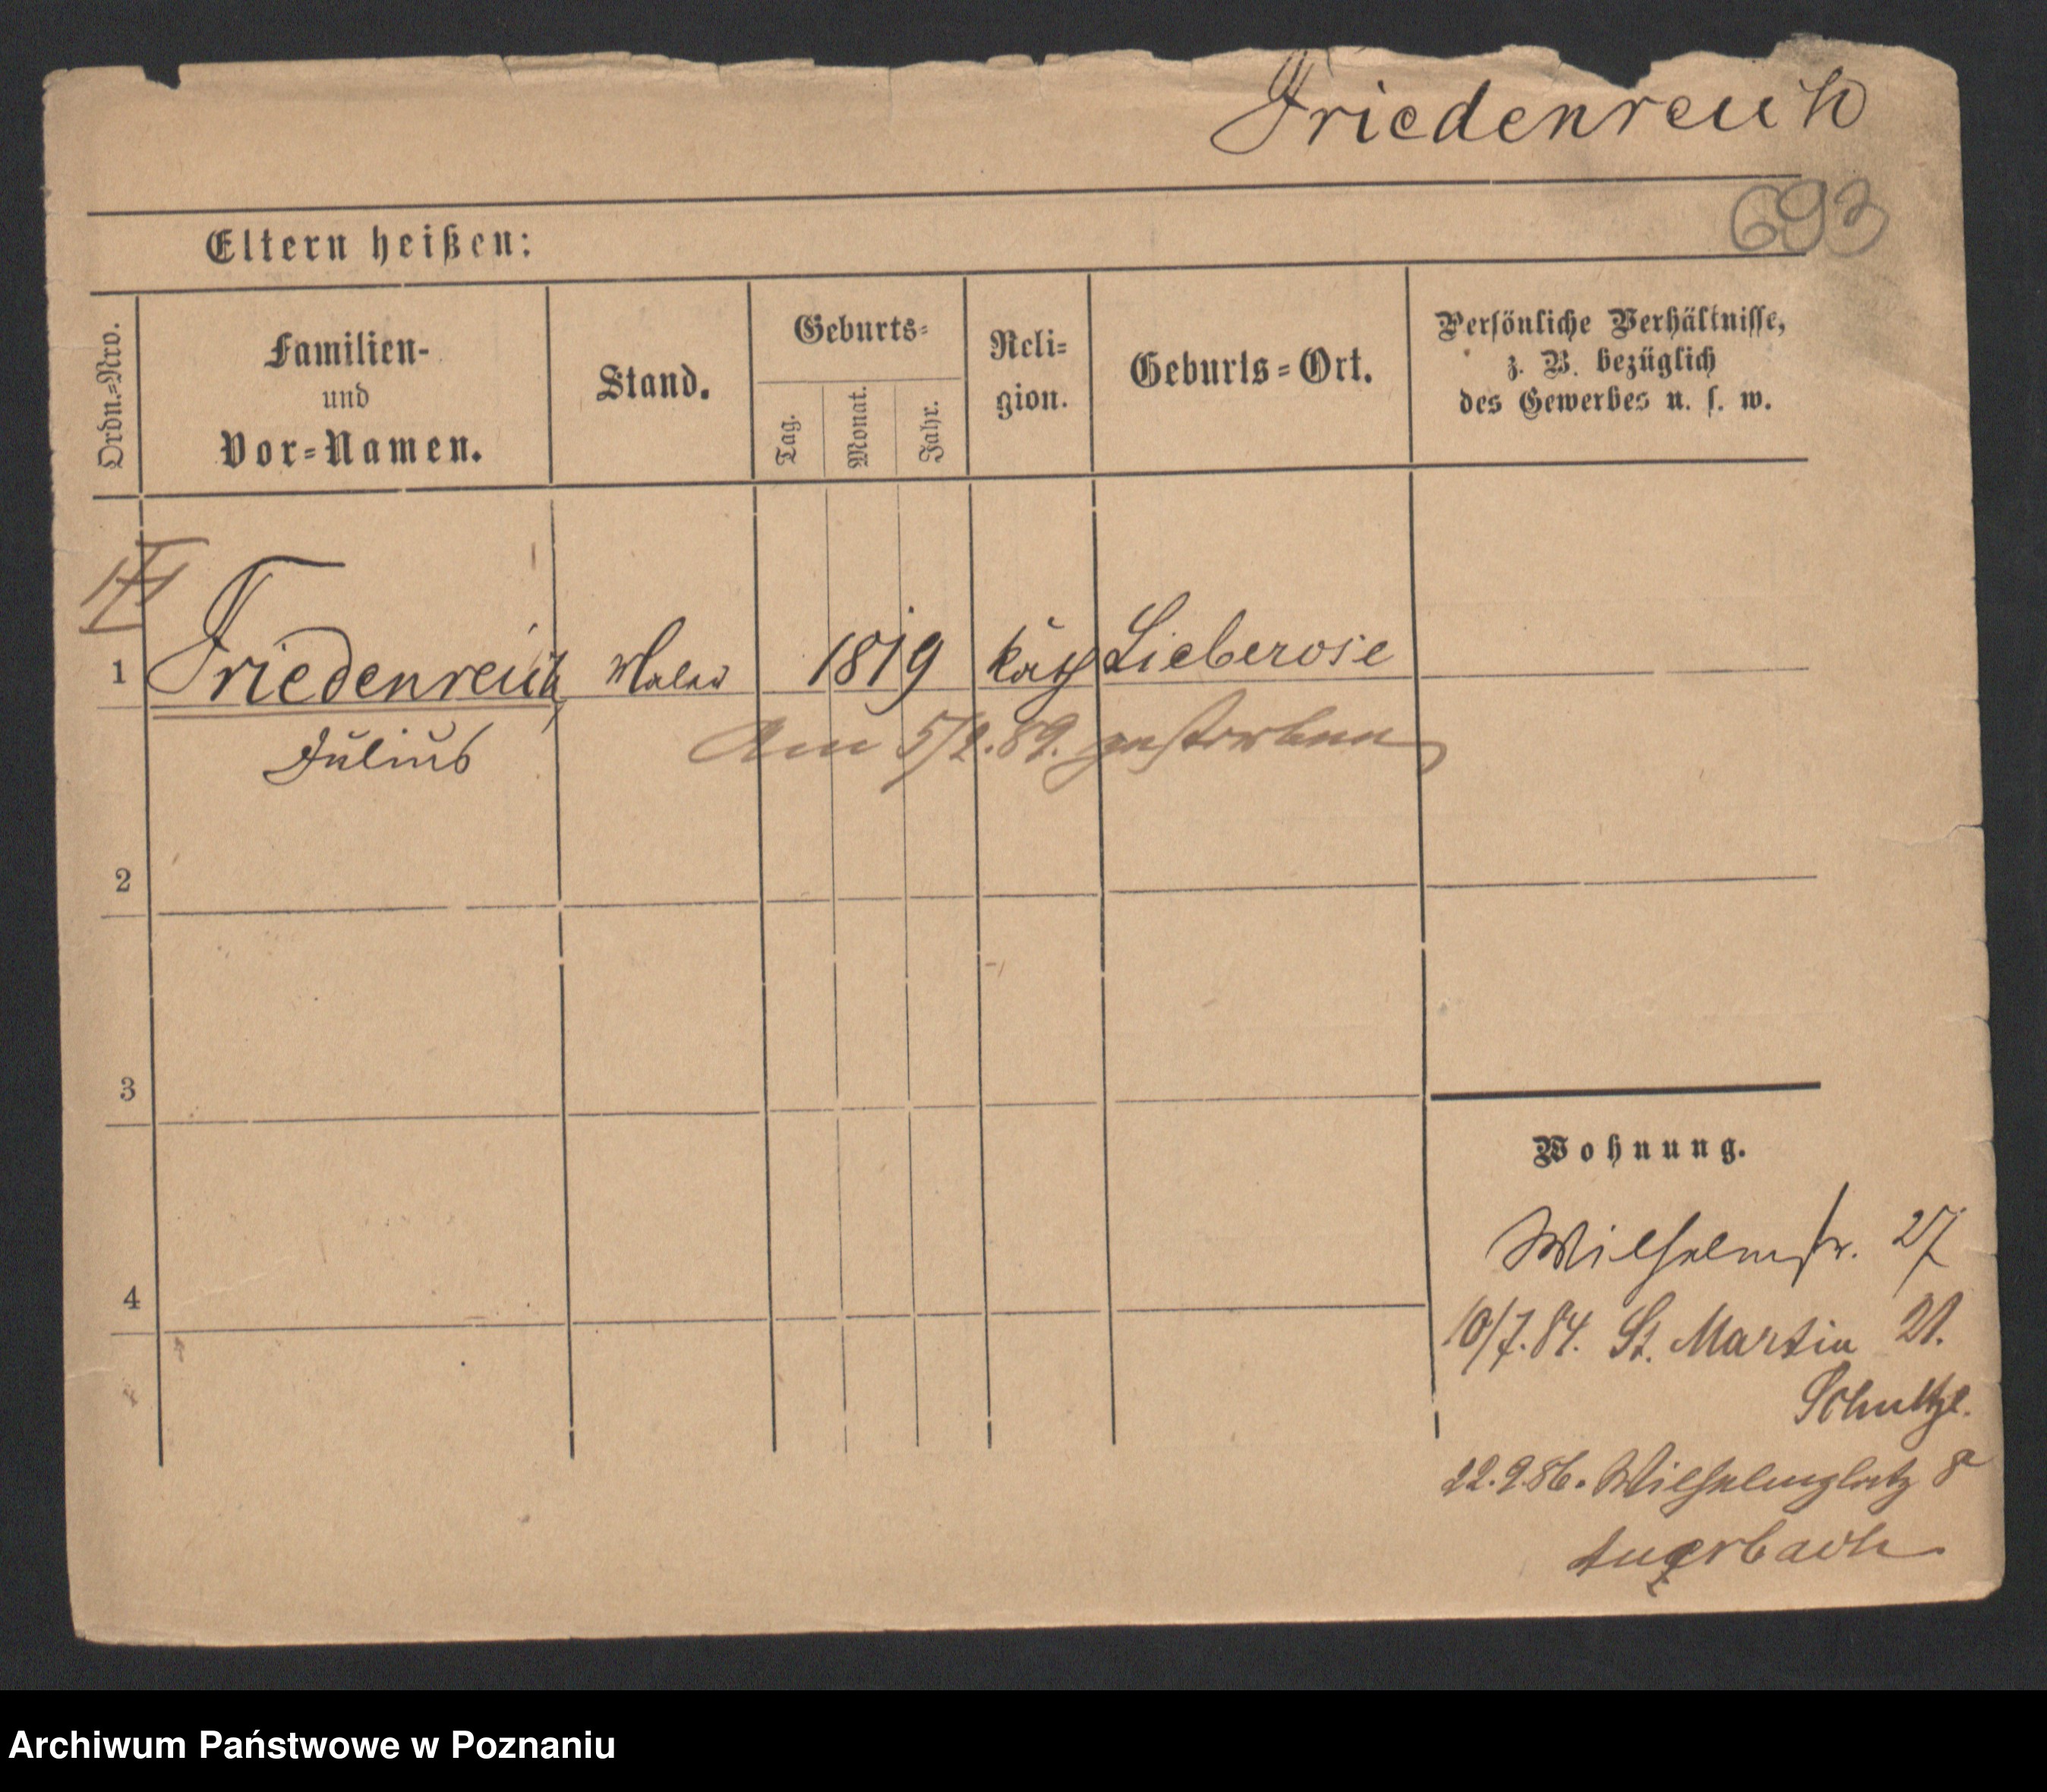 Friedenreich
693
Eltern heißen:
Ordn.=Nro.
Familien-
und
Vor=Namen.
Stand.
Geburts=
Tag.
Monat.
Jahr.
Reli=
gion.
Geburts=Ort.
Persönliche Verhältnisse,
z. B. bezüglich
des Gewerbes u. s. w.
1 Friedenreich, Maler 1819 kath Lieberose
Julius
Am 5/2.89. gestorben
2
3
4
Wohnung.
Wilhelmstr. 27
10/7.84. St. Martin 21.
22.9.86. Wilhelmplatz 8
Auerbach
Archiwum Państwowe w Poznaniu